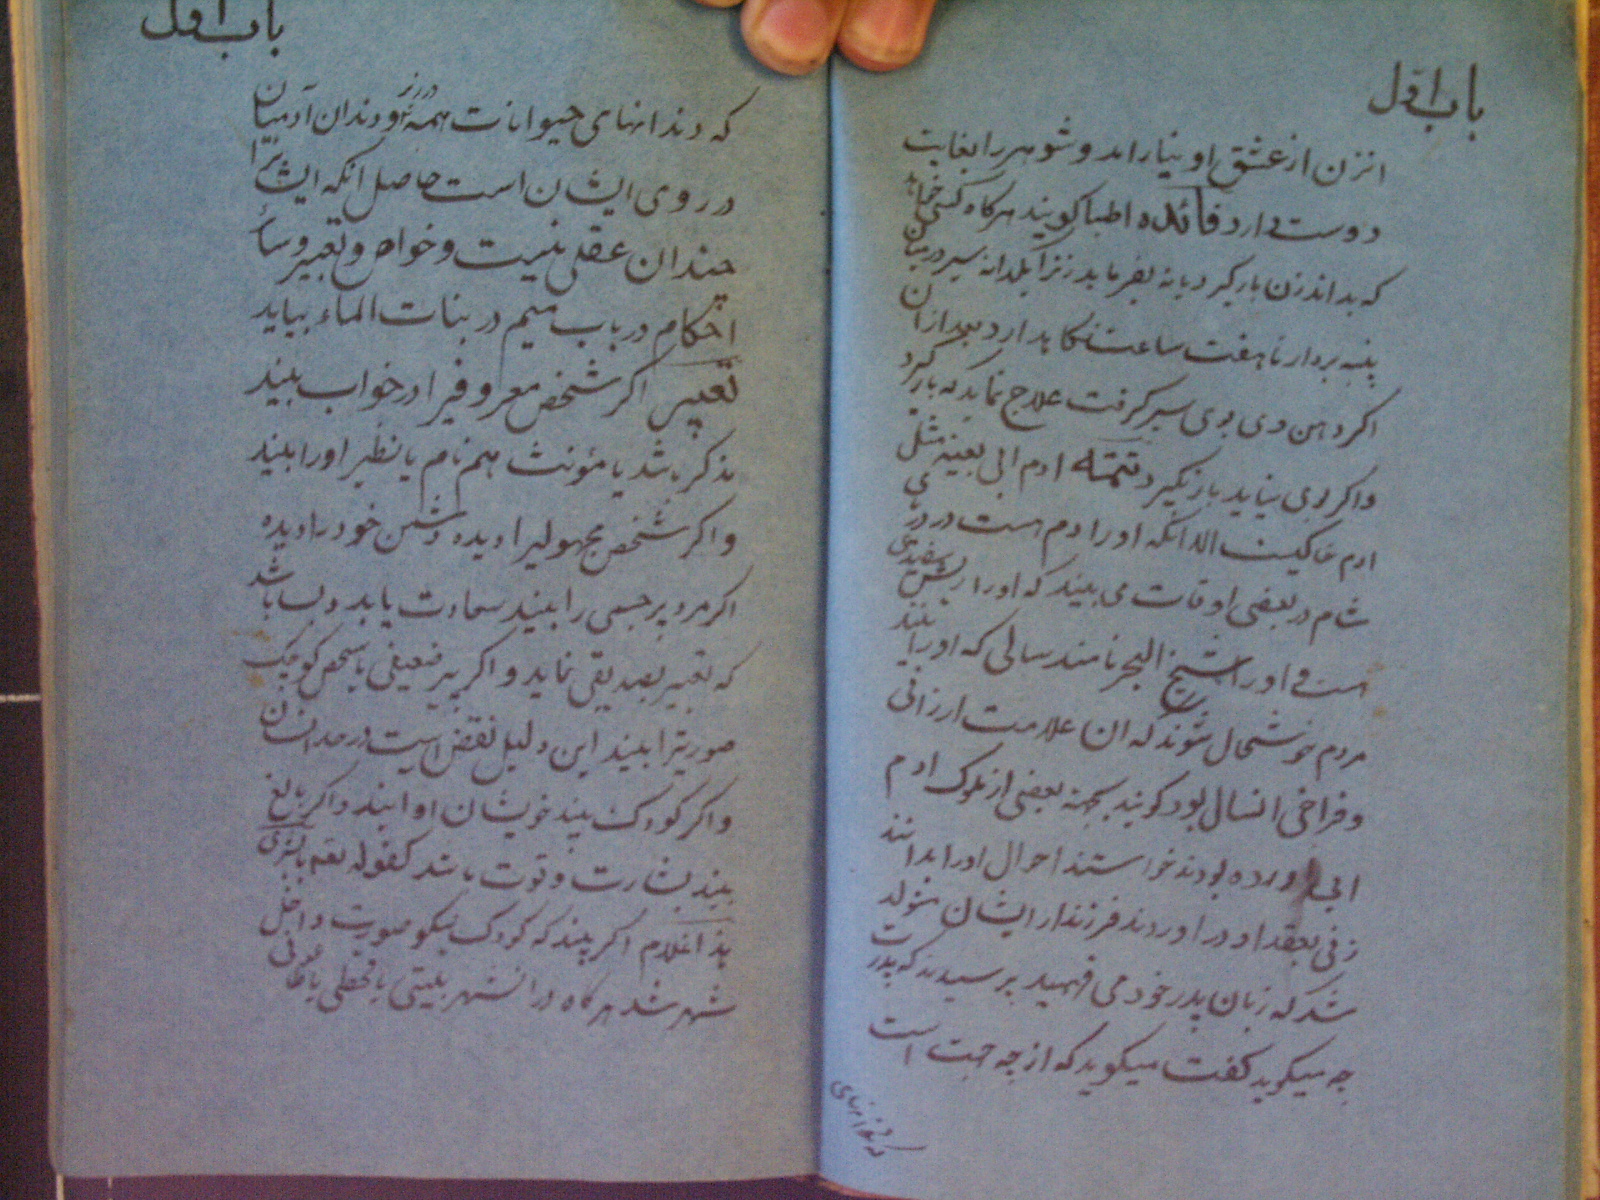 باب اول
انزن از عشق او بیارامد و شوهر را بغایت
دوست دارد فائده اطبا کویند هرکاه کسی خواهد
که بداند زن بارکیرد یا نه بفرماید زنرا یکدانه سیر در میان
پنبه بردارد تا هفت ساعت نکاه بدارد بعد از ان
اکر دهن وی بوی سیر کرفت علاج نماید که بار کیرد
و اکر بوی نیاید بار نکیرد تتمه ادم ابی بعینه مثل
ادم خاکیست الا انکه او را دم است در دریای
شام در بعضی اوقات می بینند که او را ریش سفیدی
است و او را شیخ البحر نامند سالی که او را بینند
مردم خوشحال شوند که ان علامت ارزانی
و فراخی انسال بود کویند بجهة بعضی از ملوک ادم
ابی اورده بودند خواستند احوال او را بدانند
زنی بعقد او در اوردند فرزندی از ایشان متولد
شد که زبان پدر خود می فهمید پرسیدند که پدرت
چه میکوید کفت میکوید که از چه جهت است
که دندانهای
باب اول
که دندانهای حیوانات همه در زیر و دندان آدمیان
در روی ایشان است حاصل انکه ایشانرا
چندان عقلی نیست و خواص و تعبیر و سائر
احکام در باب میم در بنات الماء بیاید
تعبیر اکر شخص معروفیرا در خواب بیند
مذکر باشد یا مؤنث هم نام یا نظیر او را بیند
و اکر شخص مجهولیرا دیده دشمن خود را دیده
اکر مرد پر جسمی را بیند سعادت یابد و بسا باشد
که تعبیر بصدیقی نماید و اکر پیر ضعیفی یا شخص کوچک
صورتیرا بیند این دلیل نقض است در حد انسان
و اکر کودک بیند خویشان او ایند و اکر بالغ
بیند بشارت و قوت باشد کقوله تعم یا بشری
هذا غلام اکر بیند که کودک نیکو صورت داخل
شهر شد هرکاه در انشهر بلیتی یا قحطی یا طاعونی